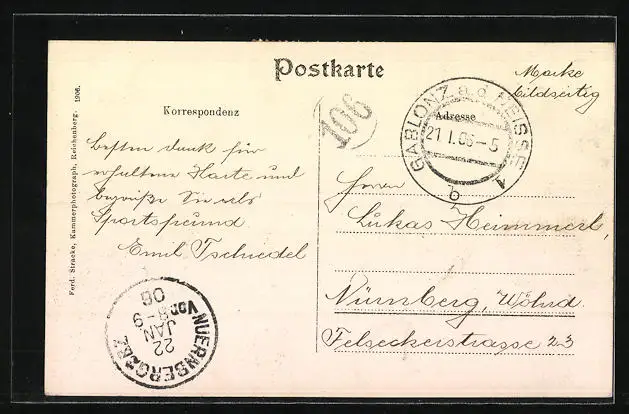 Postkarte
Marke
bildseitig
Korrespondenz
Adresse
106
GABLONZ a. d. NEISSE
21 I. 06-5
b 1
besten dank für
erhaltene Karte und
begrüße Sie als
Sportsfreund
Emil Tschiedel
Herrn
Lukas Heimmerl,
Nürnberg, Wöhrd
Felseckerstrasse 23
NUERNBERG 2 BZ.
22
JAN
Vor. 8-9
06
Ferd. Stracke, Kammerphotograph, Reichenberg. 1906.